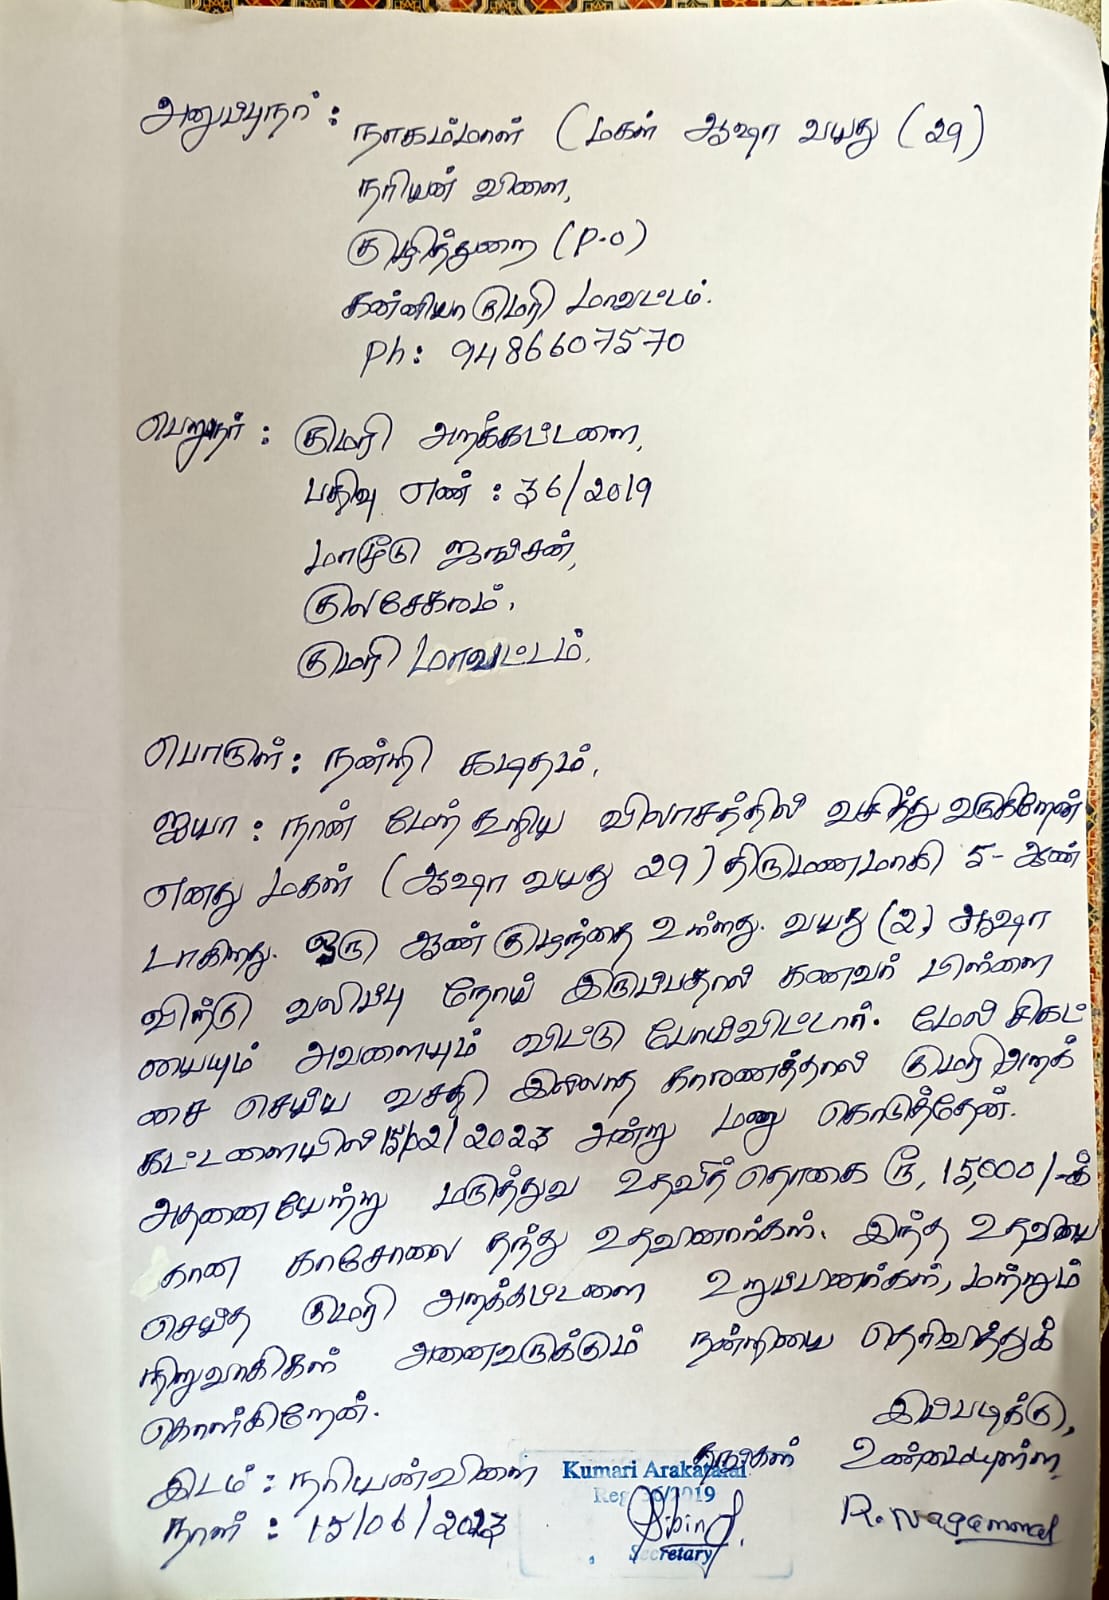 அனுப்புநர் :
நாகம்மாள் (மகள் ஆஷா வயது (29)
நரியன் விளை,
குழித்துறை (P.O)
கன்னியாகுமரி மாவட்டம்.
Ph: 9486607570
பெறுநர் : குமரி அறக்கட்டளை,
பதிவு எண் : 36/2019
மாமூடு ஜங்சன்,
குலசேகரம்.
குமரி மாவட்டம்.
பொருள் : நன்றி கடிதம்.
ஐயா : நான் மேற்கூறிய விலாசத்தில் வசித்து வருகிறேன்
எனது மகள் (ஆஷா வயது 29) திருமணமாகி 5- ஆண்
டாகிறது. ஒரு ஆண் குழந்தை உள்ளது. வயது (2) ஆஷா
விற்கு வலிப்பு நோய் இருப்பதால் கணவர் பிள்ளை
யையும் அவளையும் விட்டு போய்விட்டார். மேல் சிகிட்
சை செய்ய வசதி இல்லாத காரணத்தால் குமரி அறக்
கட்டளையில் 15/02/2023 அன்று மனு கொடுத்தேன்.
அதனையேற்று மருத்துவ உதவித்தொகை ரூ, 15,000/-க்
கான காசோலை தந்து உதவினார்கள். இந்த உதவியை
செய்த குமரி அறக்கட்டளை உறுப்பினர்கள், மற்றும்
நிறுவாகிகள் அனைவருக்கும் நன்றியை தெரிவித்துக்
கொள்கிறேன்.
இப்படிக்கு,
தங்கள் உண்மையுள்ள,
இடம் : நரியன்விளை
நாள் : 15/06/2023
Kumari Arakatalai
Reg 36/2019
Secretary
R. Nagammal